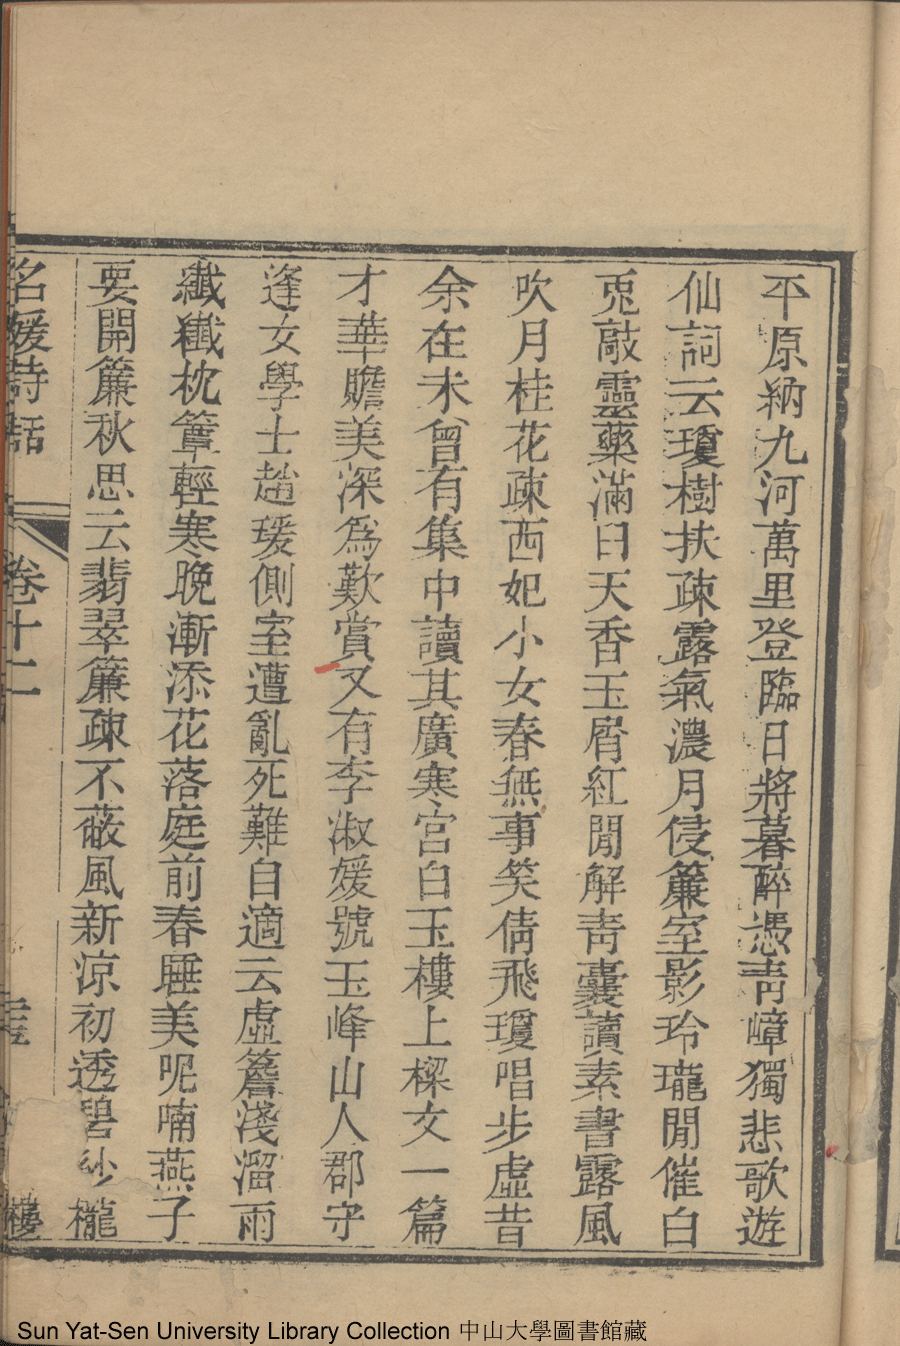 平原納九河萬里登臨日將暮醉憑靑嶂獨悲歌遊
仙詞云瓊樹扶疎露氣濃月侵簾室影玲瓏閒催白
兎敲靈藥滿臼天香玉屑紅閒解靑囊讀素書露風
吹月桂花疎西妃小女春無事笑倩飛瓊唱步虛昔
余在未曾有集中讀其廣寒宮白玉樓上樑文一篇
才華贍美深爲歎賞又有李淑媛號玉峰山人郡守
逢女學士趙瑗側室遭亂死難自適云虛簷淺溜雨
纖纖枕簟輕寒曉漸添花落庭前春睡美呢喃燕子
要開簾秋思云翡翠簾疎不蔽風新凉初透碧紗櫳
名媛詩話
卷十二
Sun Yat-Sen University Library Collection 中山大學圖書館藏